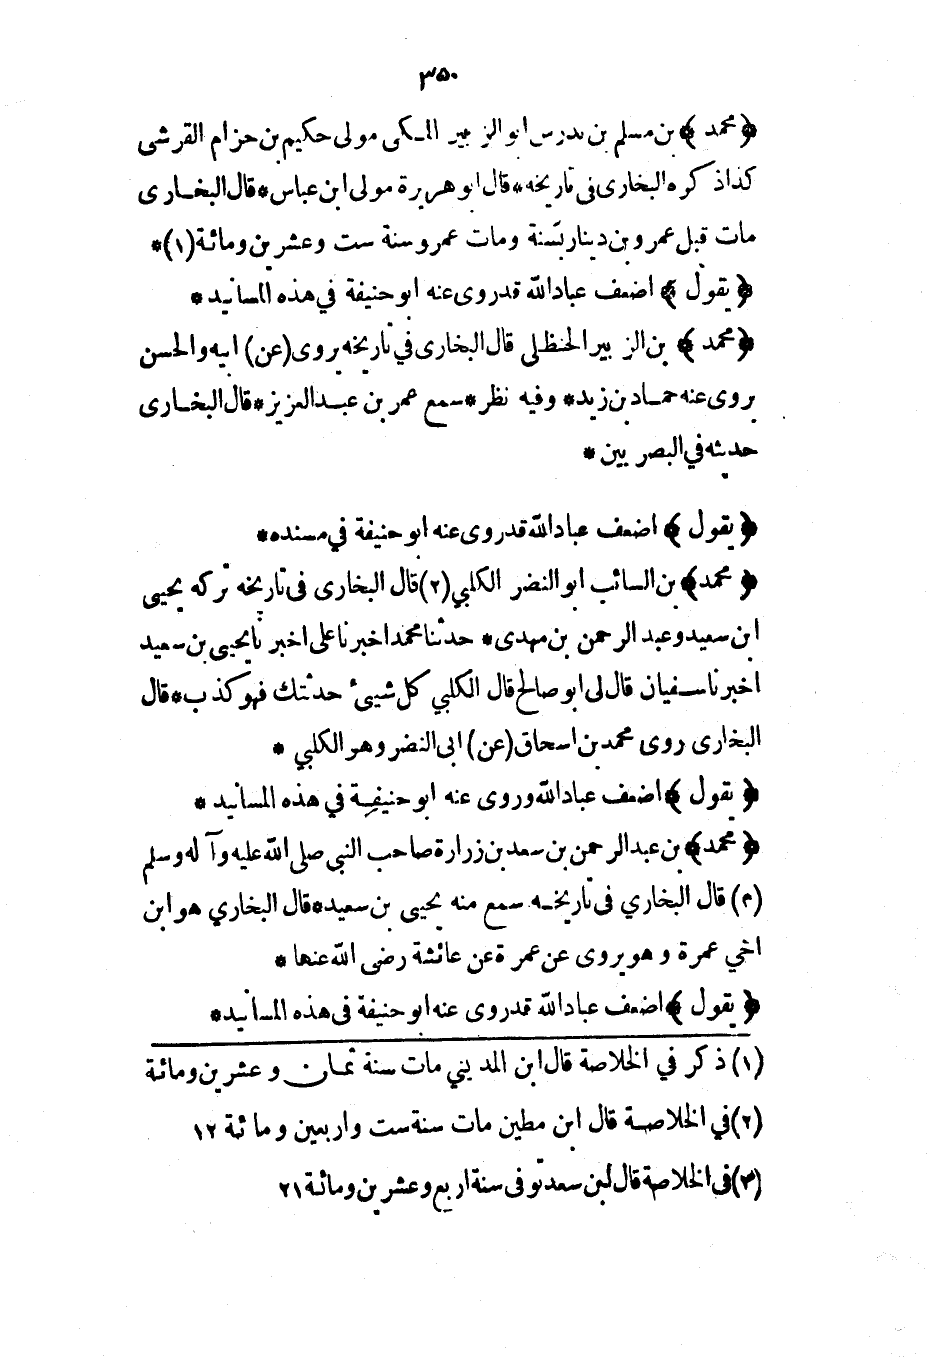 ۳۵۰
﴿محمد﴾ بن مسلم بن تدرس ابو الزبير المكى مولى حكيم بن حزام القرشى
كذا ذكره البخارى فى تاريخه * قال ابو هريرة مولى ابن عباس * قال البخارى
مات قبل عمرو بن دينار بسنة ومات عمرو سنة ست وعشرين ومائة (١) *
﴿يقول﴾ اضعف عباد الله قد روى عنه ابو حنيفة في هذه المسانيد *
﴿محمد﴾ بن الزبير الحنظلى قال البخارى في تاريخه يروى (عن) ابيه والحسن
يروى عنه حماد بن زيد * وفيه نظر * سمع عمر بن عبد العزيز * قال البخارى
حديثه في البصريين *
﴿يقول﴾ اضعف عباد الله قد روى عنه ابو حنيفة في مسنده *
﴿محمد﴾ بن السائب ابو النضر الكلبي (٢) قال البخارى فى تاريخه تركه يحيى
ابن سعيد وعبد الرحمن بن مهدى * حدثنا محمد اخبرنا على اخبرنا يحيى بن سعيد
اخبرنا سفيان قال لى ابو صالح قال الكلبي كل شيئ حدثتك فهو كذب * قال
البخارى روى محمد بن اسحاق (عن) ابى النضر وهو الكلبي *
﴿يقول﴾ اضعف عباد الله وروى عنه ابو حنيفة في هذه المسانيد *
﴿محمد﴾ بن عبد الرحمن بن سعد بن زرارة صاحب النبي صلى الله عليه وآله وسلم
(٣) قال البخاري فى تاريخه سمع منه يحيى بن سعيد * قال البخاري هو ابن
اخي عمرة وهو يروى عن عمرة عن عائشة رضى الله عنها *
﴿يقول﴾ اضعف عباد الله قد روى عنه ابو حنيفة فى هذه المسانيد *
(١) ذكر في الخلاصة قال ابن المديني مات سنة ثمان وعشرين ومائة
(٢) في الخلاصة قال ابن مطين مات سنة ست واربعين ومائة ١٢
(٣) فى الخلاصة قال ابن سعد توفى سنة اربع وعشرين ومائة ٢١